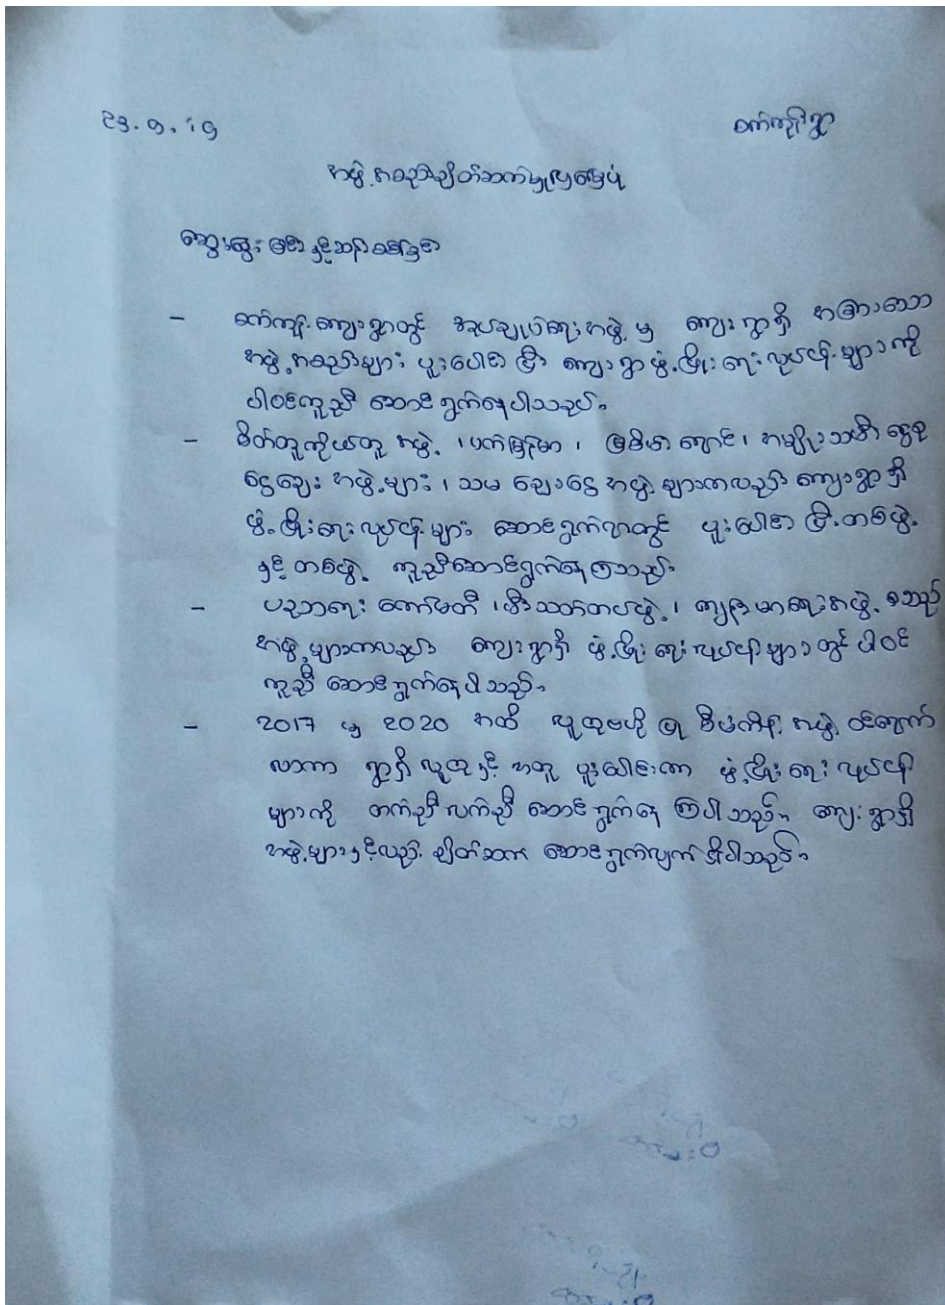 စက်ကုန်းရွာ
အဖွဲ့အစည်းချိတ်ဆက်မှုပြမြေပုံ
ဆွေးနွေးခြင်းနှင့်ဆန်းစစ်ခြင်း
- စက်ကုန်းကျေးရွာတွင် အုပ်ချုပ်ရေးအဖွဲ့မှ ကျေးရွာရှိ အခြားသော
အဖွဲ့အစည်းများ ပူးပေါင်းပြီး ကျေးရွာဖွံ့ဖြိုးရေးလုပ်ငန်းများကို
ပါဝင်ကူညီ ဆောင်ရွက်နေပါသည်။
- စိတ်တူကိုယ်တူ အဖွဲ့၊ ပက်မြန်မာ၊ မြစိမ်းရောင်၊ အမျိုးသမီးငွေစု
ငွေချေး အဖွဲ့များ၊ သမချေးငွေ အဖွဲ့များကလည်း ကျေးရွာရှိ
ဖွံ့ဖြိုးရေးလုပ်ငန်းများ ဆောင်ရွက်ရာတွင် ပူးပေါင်းပြီး တစ်ဖွဲ့
နှင့် တစ်ဖွဲ့ ကူညီဆောင်ရွက်နေကြသည်။
- ပညာရေး ကော်မတီ၊ မီးသတ်တပ်ဖွဲ့၊ ကျန်းမာရေးအဖွဲ့ စသည့်
အဖွဲ့များကလည်း ကျေးရွာရှိ ဖွံ့ဖြိုးရေးလုပ်ငန်းများတွင် ပါဝင်
ကူညီ ဆောင်ရွက်နေပါသည်။
- 2017 မှ 2020 အထိ လူထုဗဟိုပြု စီမံကိန်းအဖွဲ့ ဝင်ရောက်
လာကာ ရွာရှိလူထုနှင့် အတူ ပူးပေါင်းကာ ဖွံ့ဖြိုးရေးလုပ်ငန်း
များကို တက်ညီလက်ညီ ဆောင်ရွက်နေကြပါသည်။ ကျေးရွာရှိ
အဖွဲ့များနှင့်လည်း ချိတ်ဆက် ဆောင်ရွက်လျက် ရှိပါသည်။